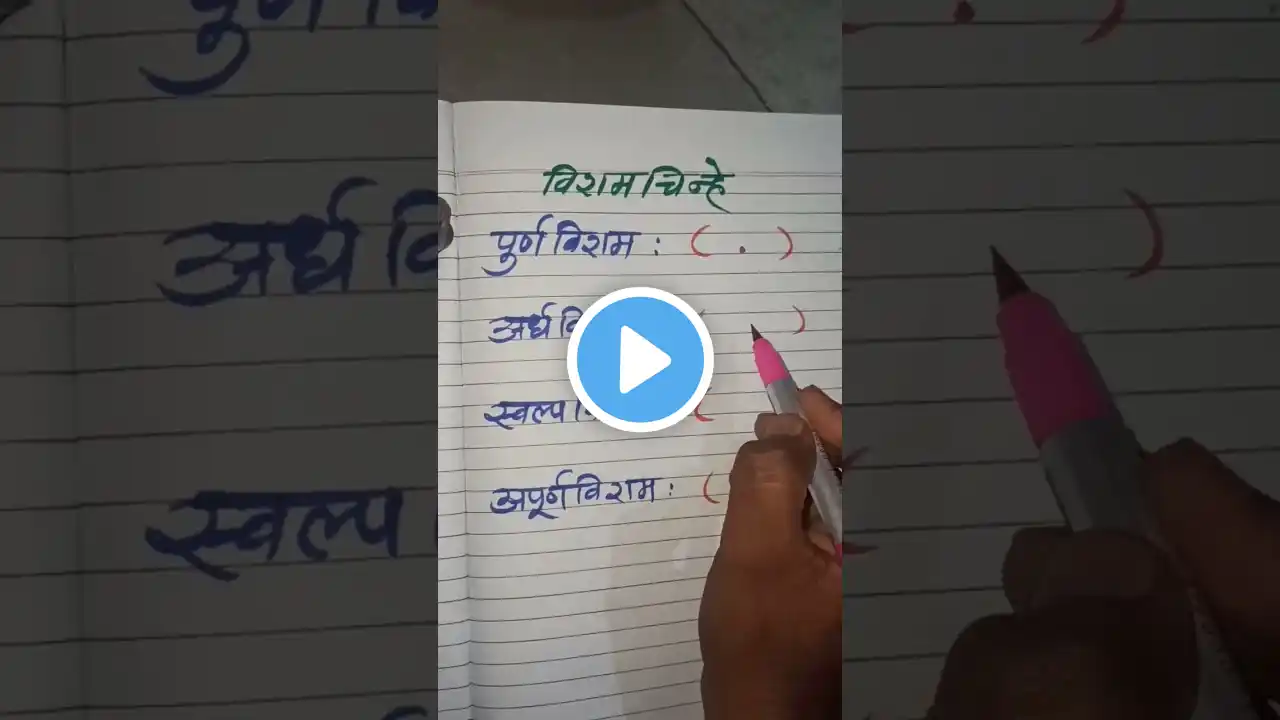 विराम चिन्हे
पुर्ण विराम : ( . )
अर्ध वि ( )
स्वल्प वि (
अपूर्ण विराम : (